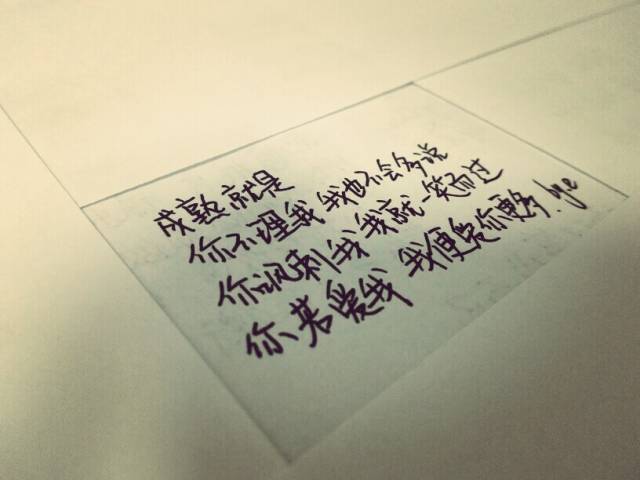 成熟就是
你不理我 我也不会多说
你讽刺我 我就一笑而过
你若爱我 我便爱你更多!